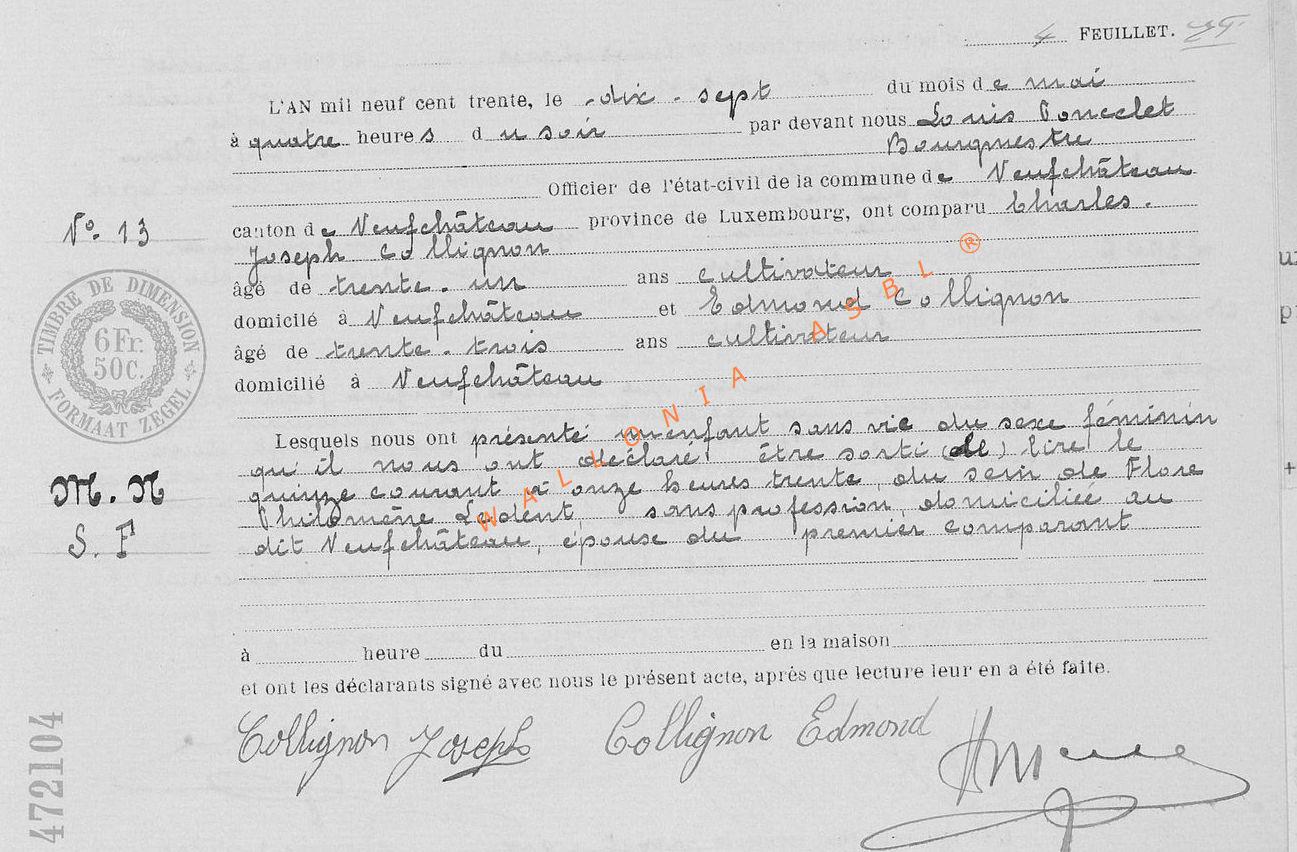 4 FEUILLET.
L'AN mil neuf cent trente, le dix-sept du mois de mai
à quatre heures du soir par devant nous Louis Poncelet
Bourgmestre
Officier de l'état-civil de la commune de Neufchâteau
N° 13
canton de Neufchâteau province de Luxembourg, ont comparu Charles-
Joseph Collignon
âgé de trente-un ans cultivateur
domicilé à Neufchâteau et Edmond Collignon
âgé de trente-trois ans cultivateur
domicilié à Neufchâteau
TIMBRE DE DIMENSION
6 Fr.
50C.
FORMAAT ZEGEL
Lesquels nous ont présenté un enfant sans vie du sexe féminin
qu'il nous ont déclaré être sorti (de) lire le
quinze courant à onze heures trente, du sein de Flore
Philomène Ledent, sans profession, domiciliée au
dit Neufchâteau, épouse du premier comparant
M. N
S. F
WALLONIA ASBL ®
à heure du en la maison
et ont les déclarants signé avec nous le présent acte, après que lecture leur en a été faite.
Collignon Joseph Collignon Edmond
472104